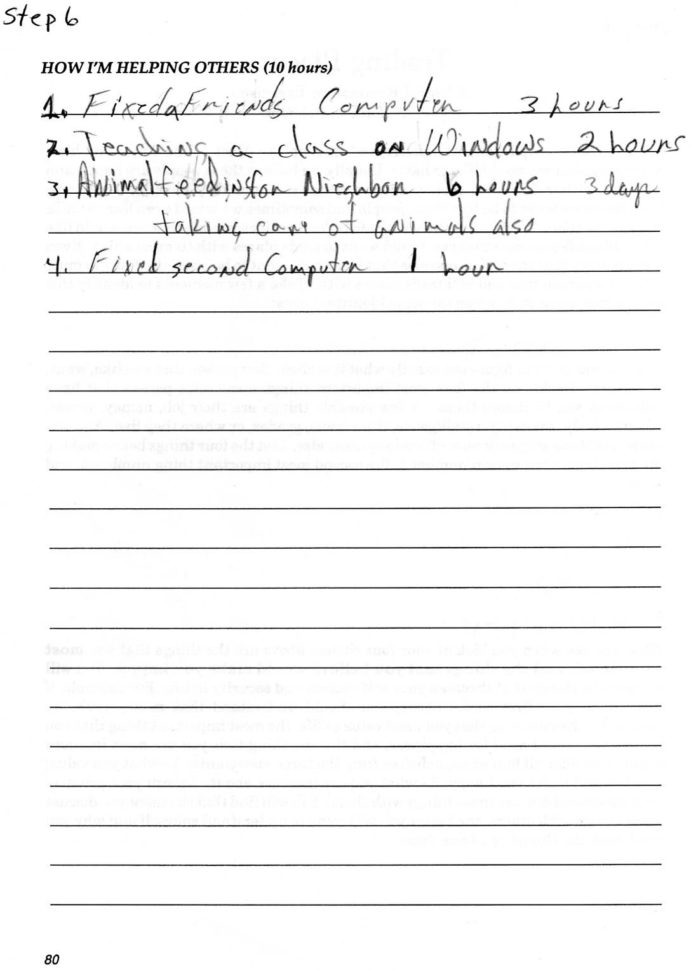 Step 6
HOW I'M HELPING OTHERS (10 hours)
1. Fixed a Friends Computer 3 hours
2. Teaching a class on Windows 2 hours
3. Animal feeding for Nieghbor 6 hours 3 days
taking care of animals also
4. Fixed second Computer 1 hour
80